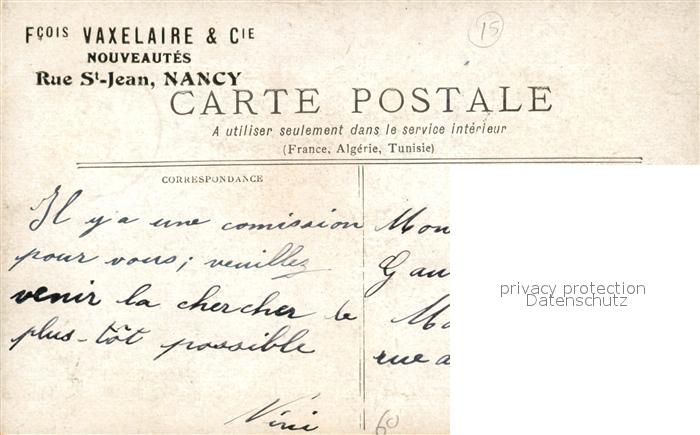 15
FÇOIS VAXELAIRE & CIE
NOUVEAUTÉS
Rue St-Jean, NANCY
CARTE POSTALE
A utiliser seulement dans le service intérieur
(France, Algérie, Tunisie)
CORRESPONDANCE
Il y a une comission
pour vous; veuillez
venir la chercher le
plus-tôt possible
Nini
Mon
Gau
Ma
rue a
60
privacy protection
Datenschutz